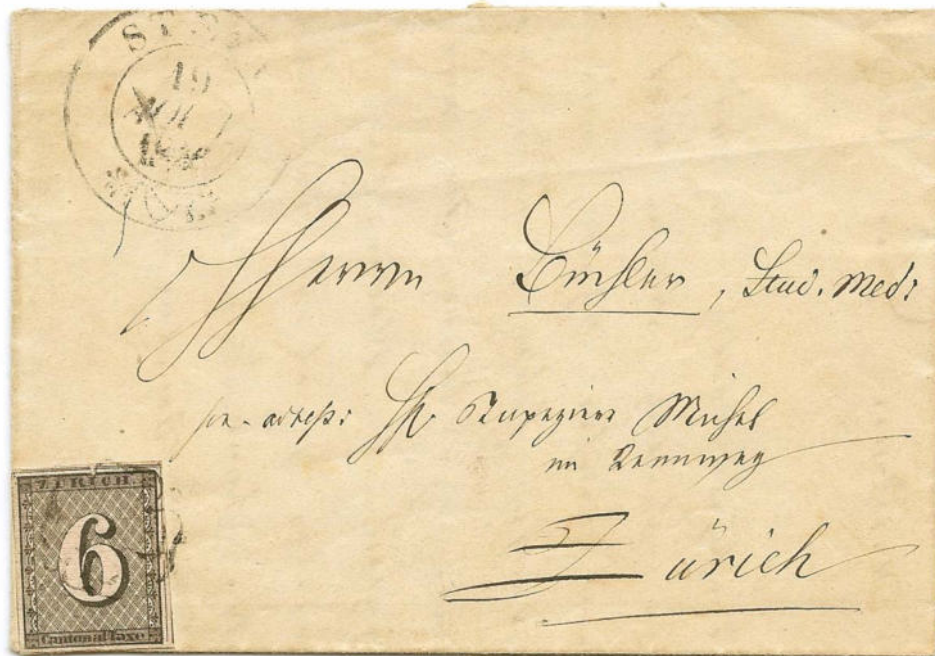 19
Herrn Bühler, Stud. Med:
pr. adress: Hr. Tapezierer Michel
im Rennweg
Zürich
ZÜRICH
6
Cantonal Taxe